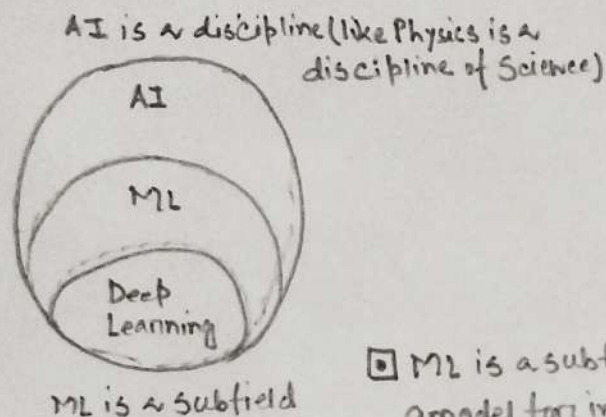 AI is a discipline (like Physics is a
discipline of Science)
AI
ML
Deep
Learning
ML is a subfield
ML is a subf
a model